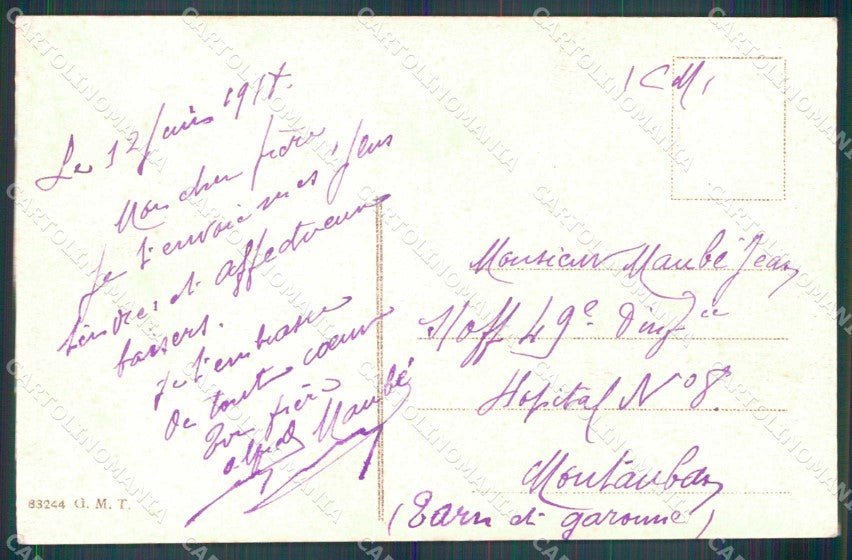 Le 12 Juin 1917.
Mon cher frère
Je t'envoie mes plus
tendres et affectueux
baisers.
Je t'embrasse
de tout coeur
Ton frère
Alfred Maubé
83244 G. M. T.
(CM)
Monsieur Maubé Jean
49e Dinf ie
Hopital No 8.
Montauban
(Tarn et garonne)
CARTOLINOMANIA